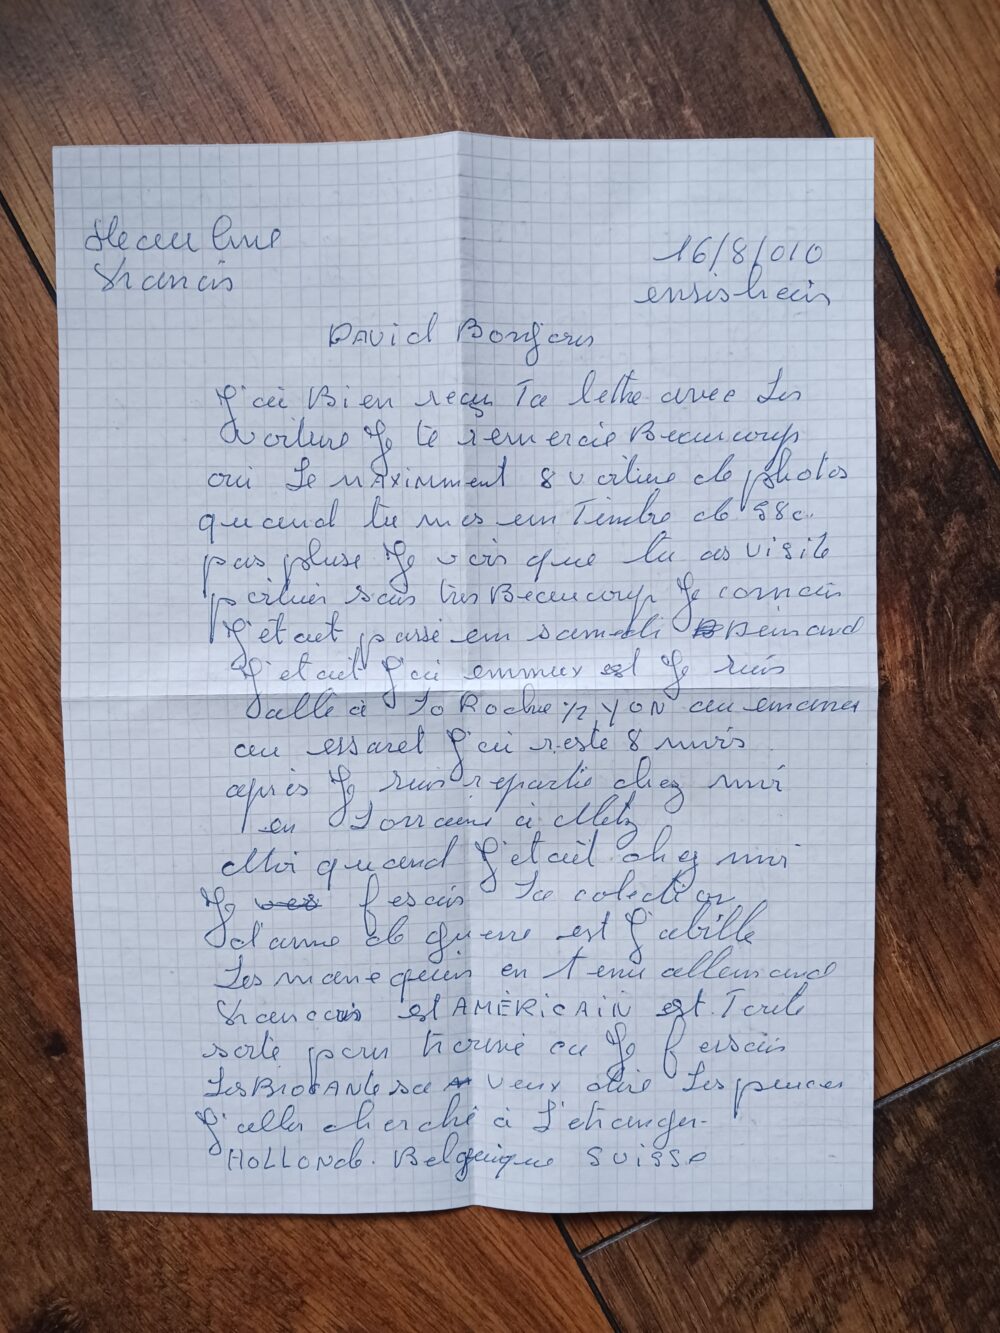 Heaulme
Francis
16/8/010
ensisheim
DAVid Bonjour
J'ai Bien reçu Ta lettre avec Les
voiture Je te remercie Beaucoup
oui Le mAXimment 8 voiture de photos
quand tu mes em Timbre de 58c.
pas pluse Je vois que tu as visite
sais tres Beaucoup Je connais
J'était passé em samedi
J'etait J'ai emmux est Je suis
allé à La Roche s/ YON au
au J'ai reste 8 mois
après Je suis repartie chez moi
en Lorraine à Metz
Moi quand J'etait chez moi
Je fesais La colection
d'arme de guerre est J'abille
Les manequin en tenu allemand
Francais est AMÉRICAIN est Toute
sorte pour trouvé ou Je fessais
Les BROCANte sa veux dire Les puces
J'aller cherché à L'etranger-
HOLLANde. Belgique SUISSe